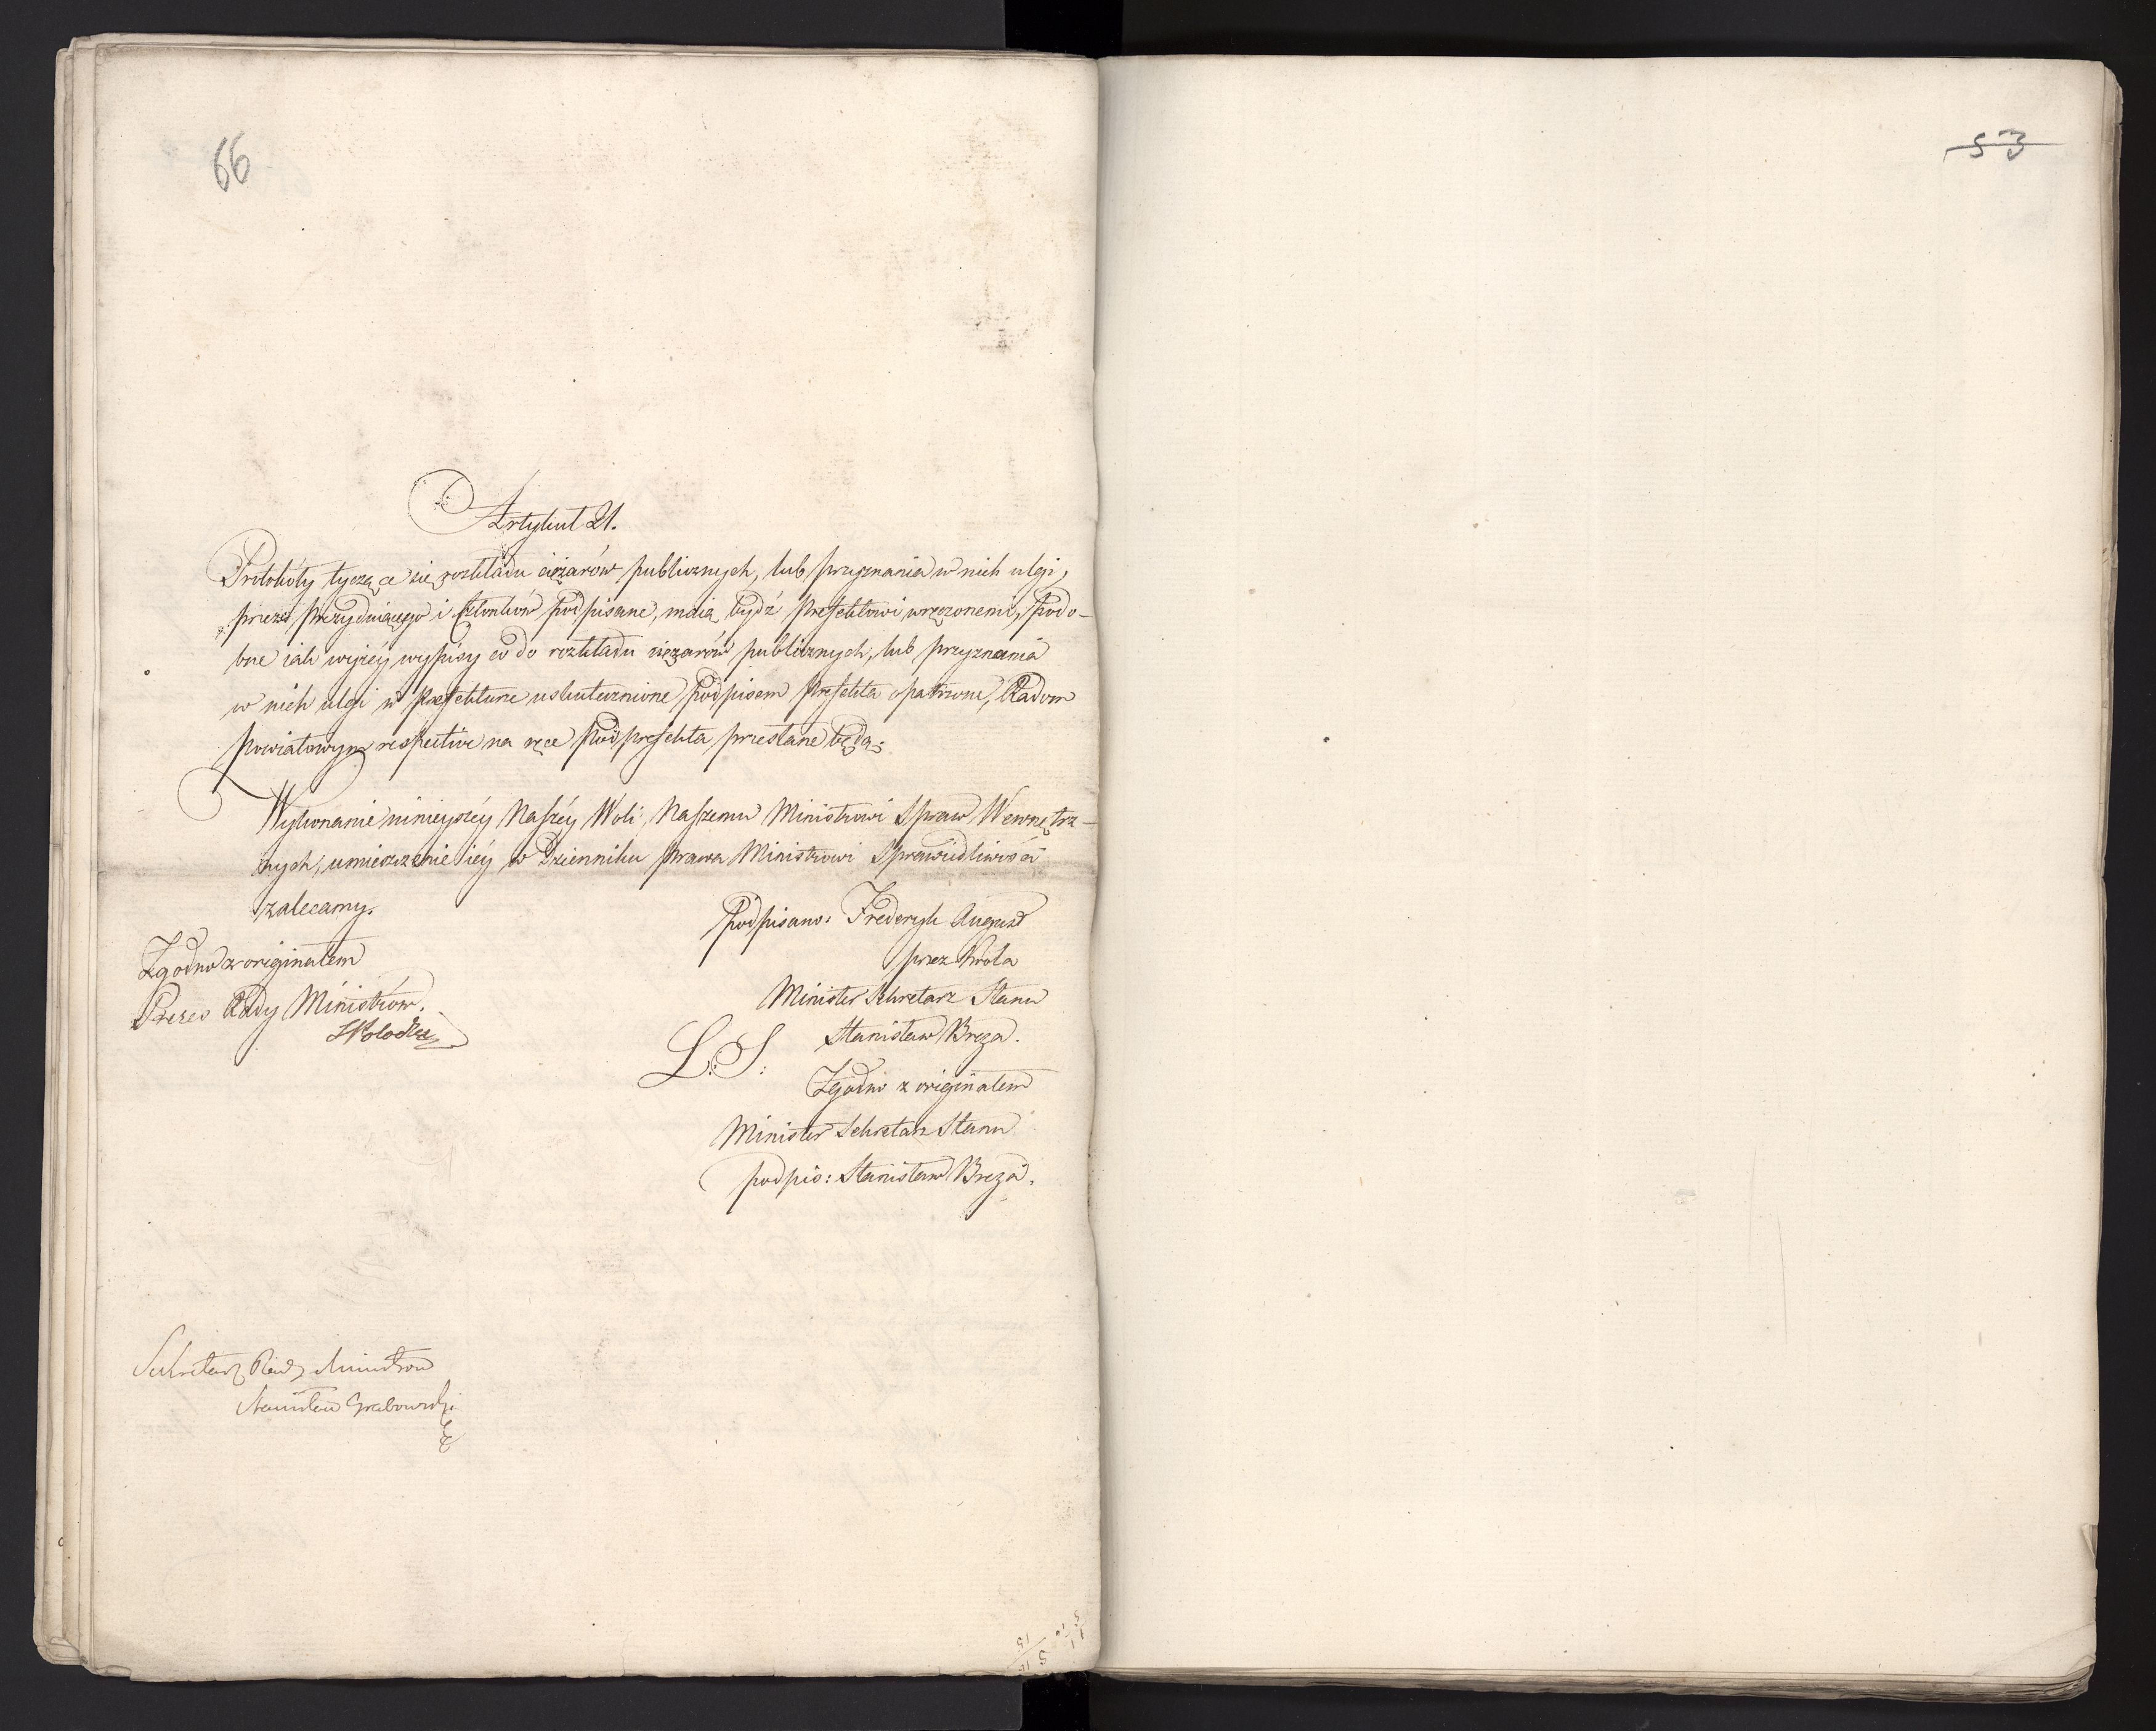 66
Artykuł 21.
Protokóły tyczące się rozkładu ciężarów publicznych, lub przyznania w nich ulgi,
przez prezyduiącego i Członków podpisane, maią bydź Prefektowi wręczonemi, podo-
bne iak wyżéy wypisy co do rozkładu ciężarów publicznych, lub przyznania
w nich ulgi w Prefekturze uskutecznione podpisem Prefekta opatrzone, Radom
Powiatowym respective na ręce Podprefekta przesłane będą.
Wykonanie ninieyszéy Naszéy Woli, Naszemu Ministrowi Spraw Wewnętrz-
nych, umieszczenie iéy w Dzienniku prawa Ministrowi Sprawiedliwości
zalecamy.
Podpisano: Frederyk August
przez Króla
Minister Sekretarz Stanu
L: S: Stanisław Breza.
Zgodno z originałem
Minister Sekretarz Stanu
podpis: Stanisław Breza.
Zgodno z originałem
Prezes Rady Ministrów.
Sekretarz Rady Ministrow
Stanisław Grabowski
53